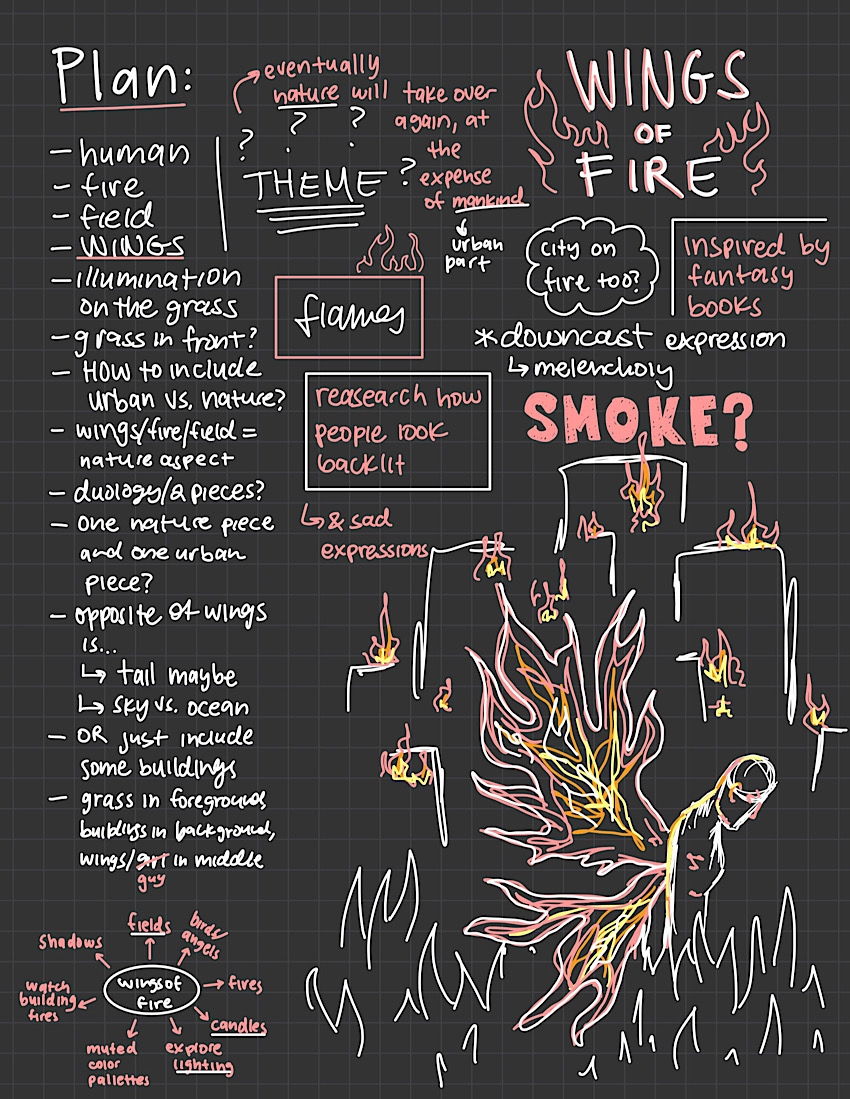 Plan:
– human
– fire
– field
– WINGS
– illumination
on the grass
– grass in front?
– How to include
urban vs. nature?
– wings/fire/field =
nature aspect
– duology/2 pieces?
– one nature piece
and one urban
piece?
– opposite of wings
is...
↳ tail maybe
↳ sky vs. ocean
– OR just include
some buildings
– grass in foreground,
buildings in background,
wings/girl in middle
guy
eventually
nature will
take over
again, at
the
expense
of mankind
? ? ? ?
THEME
urban
part
WINGS
OF
FIRE
city on
fire too?
inspired by
fantasy
books
flames
*downcast expression
↳ melencholy
reasearch how
people look
backlit
↳ & sad
expressions
SMOKE?
wings of
fire
shadows
fields
birds/
angels
fires
candles
explore
lighting
muted
color
pallettes
watch
building
fires